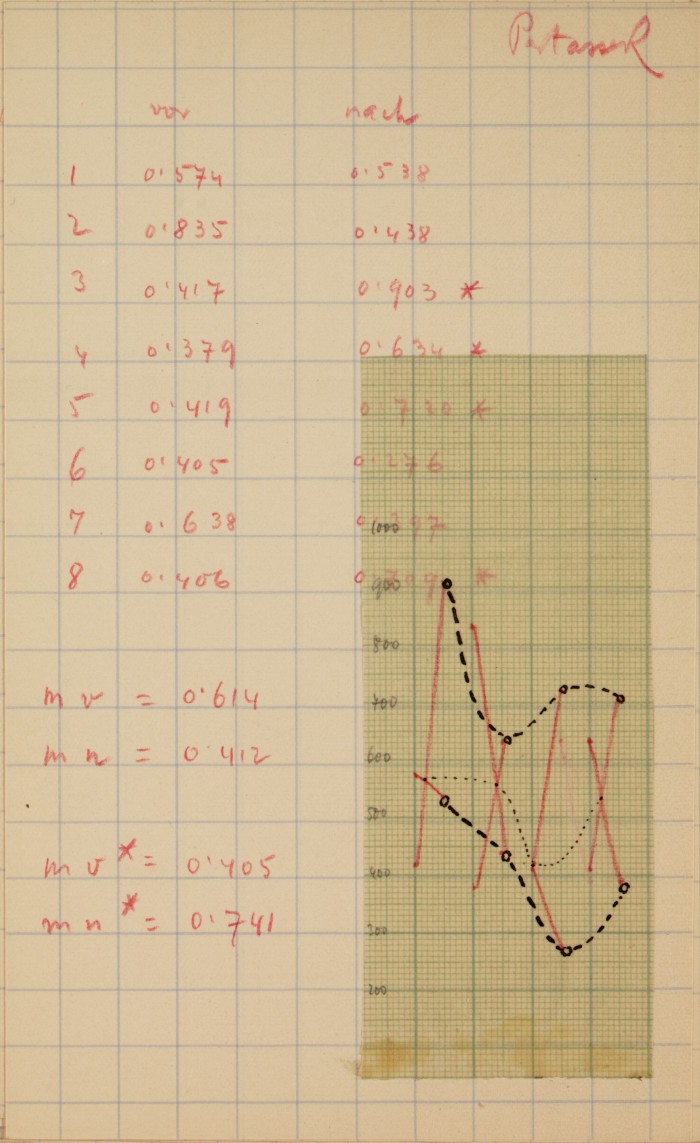 vor nach
1 0·574 0·538
2 0·835 0·438
3 0·417 0·903 *
4 0·379 0·634 *
5 0·419 0·720 *
6 0·405 0·276
7 0·638 0·397
8 0·406 *
m v = 0·614
m n = 0·412
m v* = 0·405
m n* = 0·741
1000
900
800
700
600
500
400
300
200